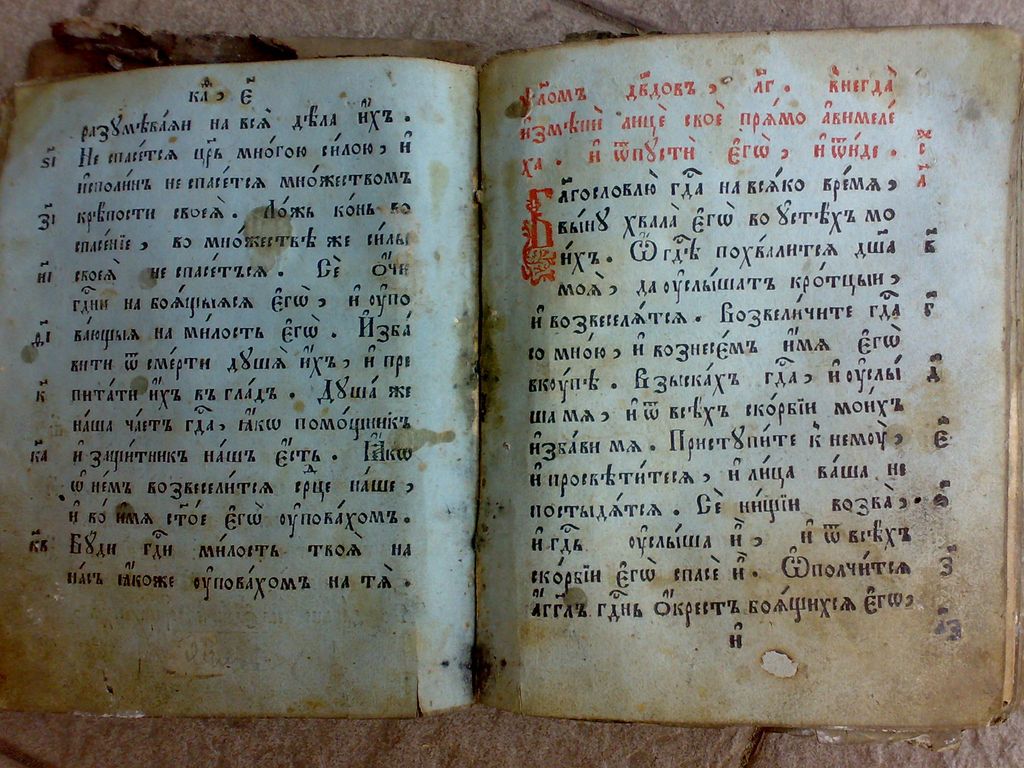 к҃а, є҃
разꙋмѣваѧи на всѧ̀ дѣла и҆́хъ .
ѕ҃і Не спасе́тсѧ цр҃ь мно́гою си́лою, и҆
и҆споли́нъ не спасе́тсѧ мно́жествомъ
з҃і крѣ́пости своеѧ̀ . Ло́жь ко́нь во
спасе́нїе, во мно́жествѣ же си́лы
и҃і своеѧ̀ не спасе́тъсѧ . Сѐ ѻ҆́чи
гд҃ни на боѧ́щыѧсѧ є҆гѡ̀, и҆ ᲂу҆по
ѳ҃і ва́ющыѧ на ми́лость є҆гѡ̀ . И҆зба́
вити ѿ сме́рти дꙋшѧ̀ и҆́хъ, и҆ пре
к҃ пита́ти и҆̀хъ въ гла́дъ . Дꙋша́ же
на́ша ча́етъ гд҃а, ꙗ҆́кѡ помо́щникъ
к҃а и҆ защи́тникъ на́шъ є҆́сть . Ꙗ҆́кѡ
ѡ҆ не́мъ возвесели́тсѧ се́рдце на́ше,
и҆ во и҆́мѧ ст҃о́е є҆гѡ̀ ᲂу҆пова́хомъ .
к҃в Бꙋди гд҃и ми́лость твоѧ̀ на
на́съ ꙗ҆́коже ᲂу҆пова́хомъ на тѧ̀ .
ѱало́мъ дв҃довъ, л҃г . внегда̀
и҆змѣнѝ лицѐ своѐ прѧ́мо а҆вимеле́
ха . и҆ ѿпꙋстѝ є҆гѡ̀, и҆ ѿи́де .
а҃ Бл҃гословлю̀ гд҃а на всѧ́ко вре́мѧ,
вы́нꙋ хвала̀ є҆гѡ̀ во ᲂустѣ́хъ мо
в҃ и҆́хъ . Ѡ҆ гд҃ѣ похва́литсѧ дш҃а̀
моѧ̀, да ᲂу҆слы́шатъ кро́тцыи,
г҃ и҆ возвеселѧ́тсѧ . Возвели́чите гд҃а
со мно́ю, и҆ вознесе́мъ и҆́мѧ є҆гѡ̀
д҃ вкꙋ́пѣ . Взыска́хъ гд҃а, и҆ ᲂу҆слы́
ша мѧ, и҆ ѿ всѣ́хъ ско́рбїи мои́хъ
є҃ и҆зба́ви мѧ . Пристꙋпи́те к немꙋ̀,
и҆ просвѣти́тесѧ, и҆ ли́ца ва́ша не
ѕ҃ постыдѧ́тсѧ . Сѐ ни́щїи возва̀,
и҆ гд҃ь ᲂу҆слы́ша и҆̀, и҆ ѿ всѣ́хъ
з҃ ско́рбїи є҆гѡ̀ спасѐ и҆̀ . Ѡ҆полчи́тсѧ
а҆́гг҃лъ гд҃нь ѻ҆́крестъ боѧ́щихсѧ є҆гѡ̀,
и҆